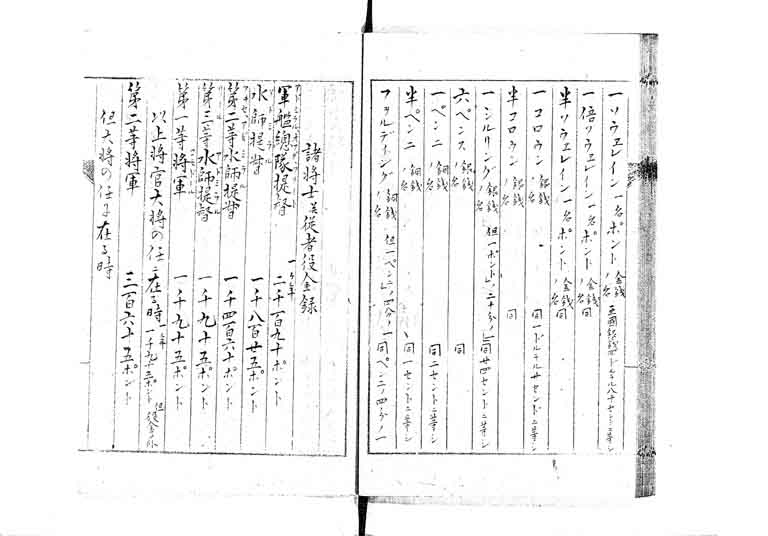 一ソウエレイン 一名ポント 金銭ノ名 英國銀銭四ドルラル八十センニ等シ
一倍ソウエレイン 一名ポント 金銭ノ名
半ソウエレイン 一名ポント 金銭ノ名 同
一コロウン 銀銭ノ名 同一ドルラル廿セントニ等シ
半コロウン 銀銭ノ名 同
一シルリング 銀銭ノ名 但一ポントノ二十分ノ一 同廿四セントニ等シ
六ペンス 銀銭ノ名 同
一ペンニ 銅銭ノ名 同二セントニ等シ
半ペンニ 銅銭ノ名 同一セントニ等シ
フアルディング 銅銭ノ名 但一ペンニノ四分ノ一 同ペンニノ四分ノ一
諸将士並従者役金録
軍艦總隊提督 一ケ年 二千百九十ポント
水師提督 一千八百廿五ポント
第二等水師提督 一千四百六十ポント
第三等水師提督 一千九十五ポント
第一等将軍 一千九十五ポント
以上将官大将の任ニ在る時 一年 一千九十五ポント 但従者
第二等将軍 三百六十五ポント
但大将の任ニ在る時